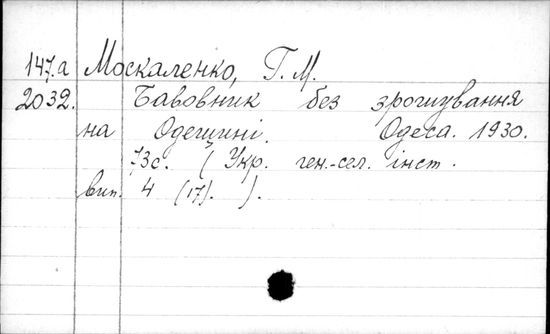 147.a Москаленко, Г. М.
2032. Бавовник без зрошування
на Одещині. Одеса. 1930.
73с. (Укр. ген.-сел. інст.
вип. 4 (17). ).